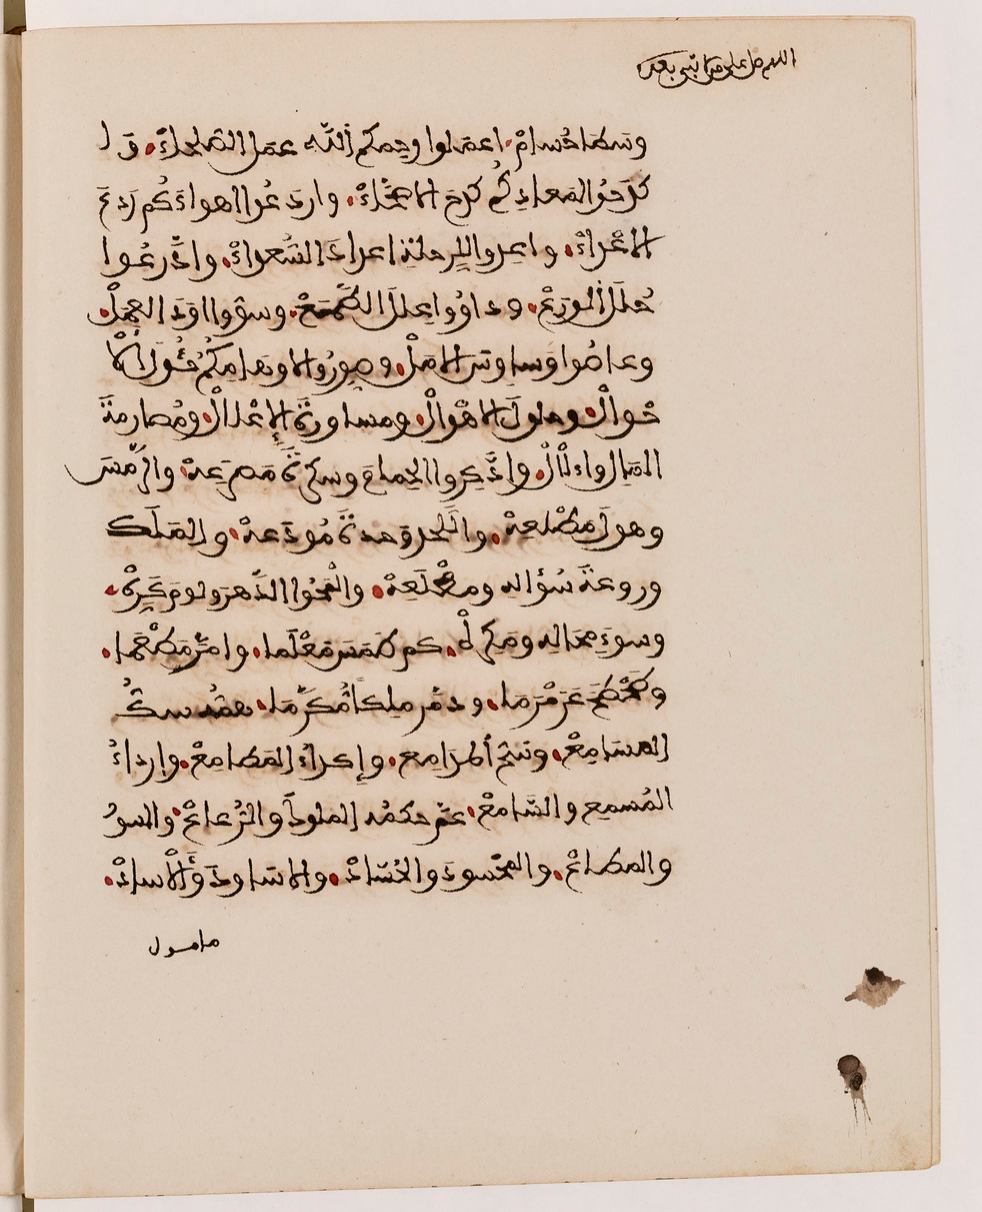 اللهم صل على من لا نبي بعده
وسطا حسامْ. اعملوا رحمكم الله عمل الصلحاءْ. وا
كدحوا لمعادكم كدح الاصحاءْ. واردعوا اهواءكم ردع
الاعداءْ. واعدوا للرحلة اعداد السعداءْ. وادّرعوا
حلل الورعْ. وداووا علل الطمعْ. وسوّوا اود العملْ.
وعاصوا وساوس الاملْ. وصوروا لاوهامكم حُئُول الا
حوالْ. وحلول الاهوالْ. ومساورة الإعلالْ. ومصارمة
المال والالْ. وادّكروا الحمام وسكرة مصرعهْ. والرمس
وهول مطلعهْ. واللحد ووحدة مودَعهْ. والملك
وروعة سؤاله ومطّلَعهْ. والمحوا الدّهر ولوم كرّهْ.
وسوء محاله ومكرهْ. كم طمس معْلما. وامرّ مطْعما.
وطحْطح عرمْرما. ودمّر ملكا مُكرّما. همُّه سكُّ
المسامعْ. وسحّ المدامع. وإكداءُ المطامعْ. وارداءُ
المُسمع والسّامعْ. عمّ حكمُه الملوك والرُعاعْ. والمسود
والمطاعْ. والمحْسود والحُسّادْ. والاساود والاسادْ.
ما مول